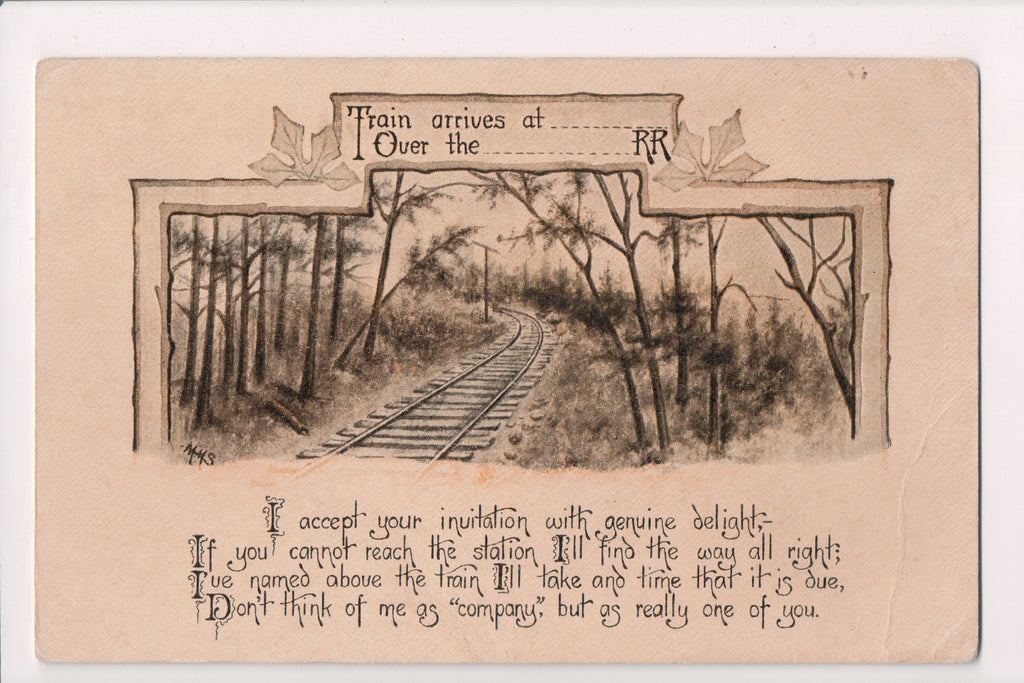 Train arrives at
Over the RR
MMS
I accept your invitation with genuine delight,-
If you cannot reach the station I'll find the way all right;
I've named above the train I'll take and time that it is due,
Don't think of me as "company", but as really one of you.